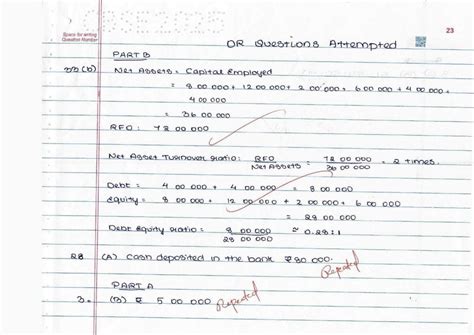 CBSE2025
Space for writing
Question Number
23
OR Questions Attempted
PART B
33 (b) Net Assets = Capital Employed
= 8 00 000 + 12 00 000 + 2 00 000 + 6 00 000 + 4 00 000 +
4 00 000
= 36 00 000
RFO: 72 00 000
Net Asset Turnover Ratio: RFO = 72 00 000 = 2 times.
Net Assets 36 00 000
Debt = 4 00 000 + 4 00 000 = 8 00 000
Equity = 8 00 000 + 12 00 000 + 2 00 000 + 6.00 000
= 28 00 000
Debt Equity Ratio = 8 00 000 = 0.28:1
28 00 000
28. (A) Cash deposited in the bank ₹80 000.
Repeated
PART A
3. (B) ₹ 5 00 000 Repeated